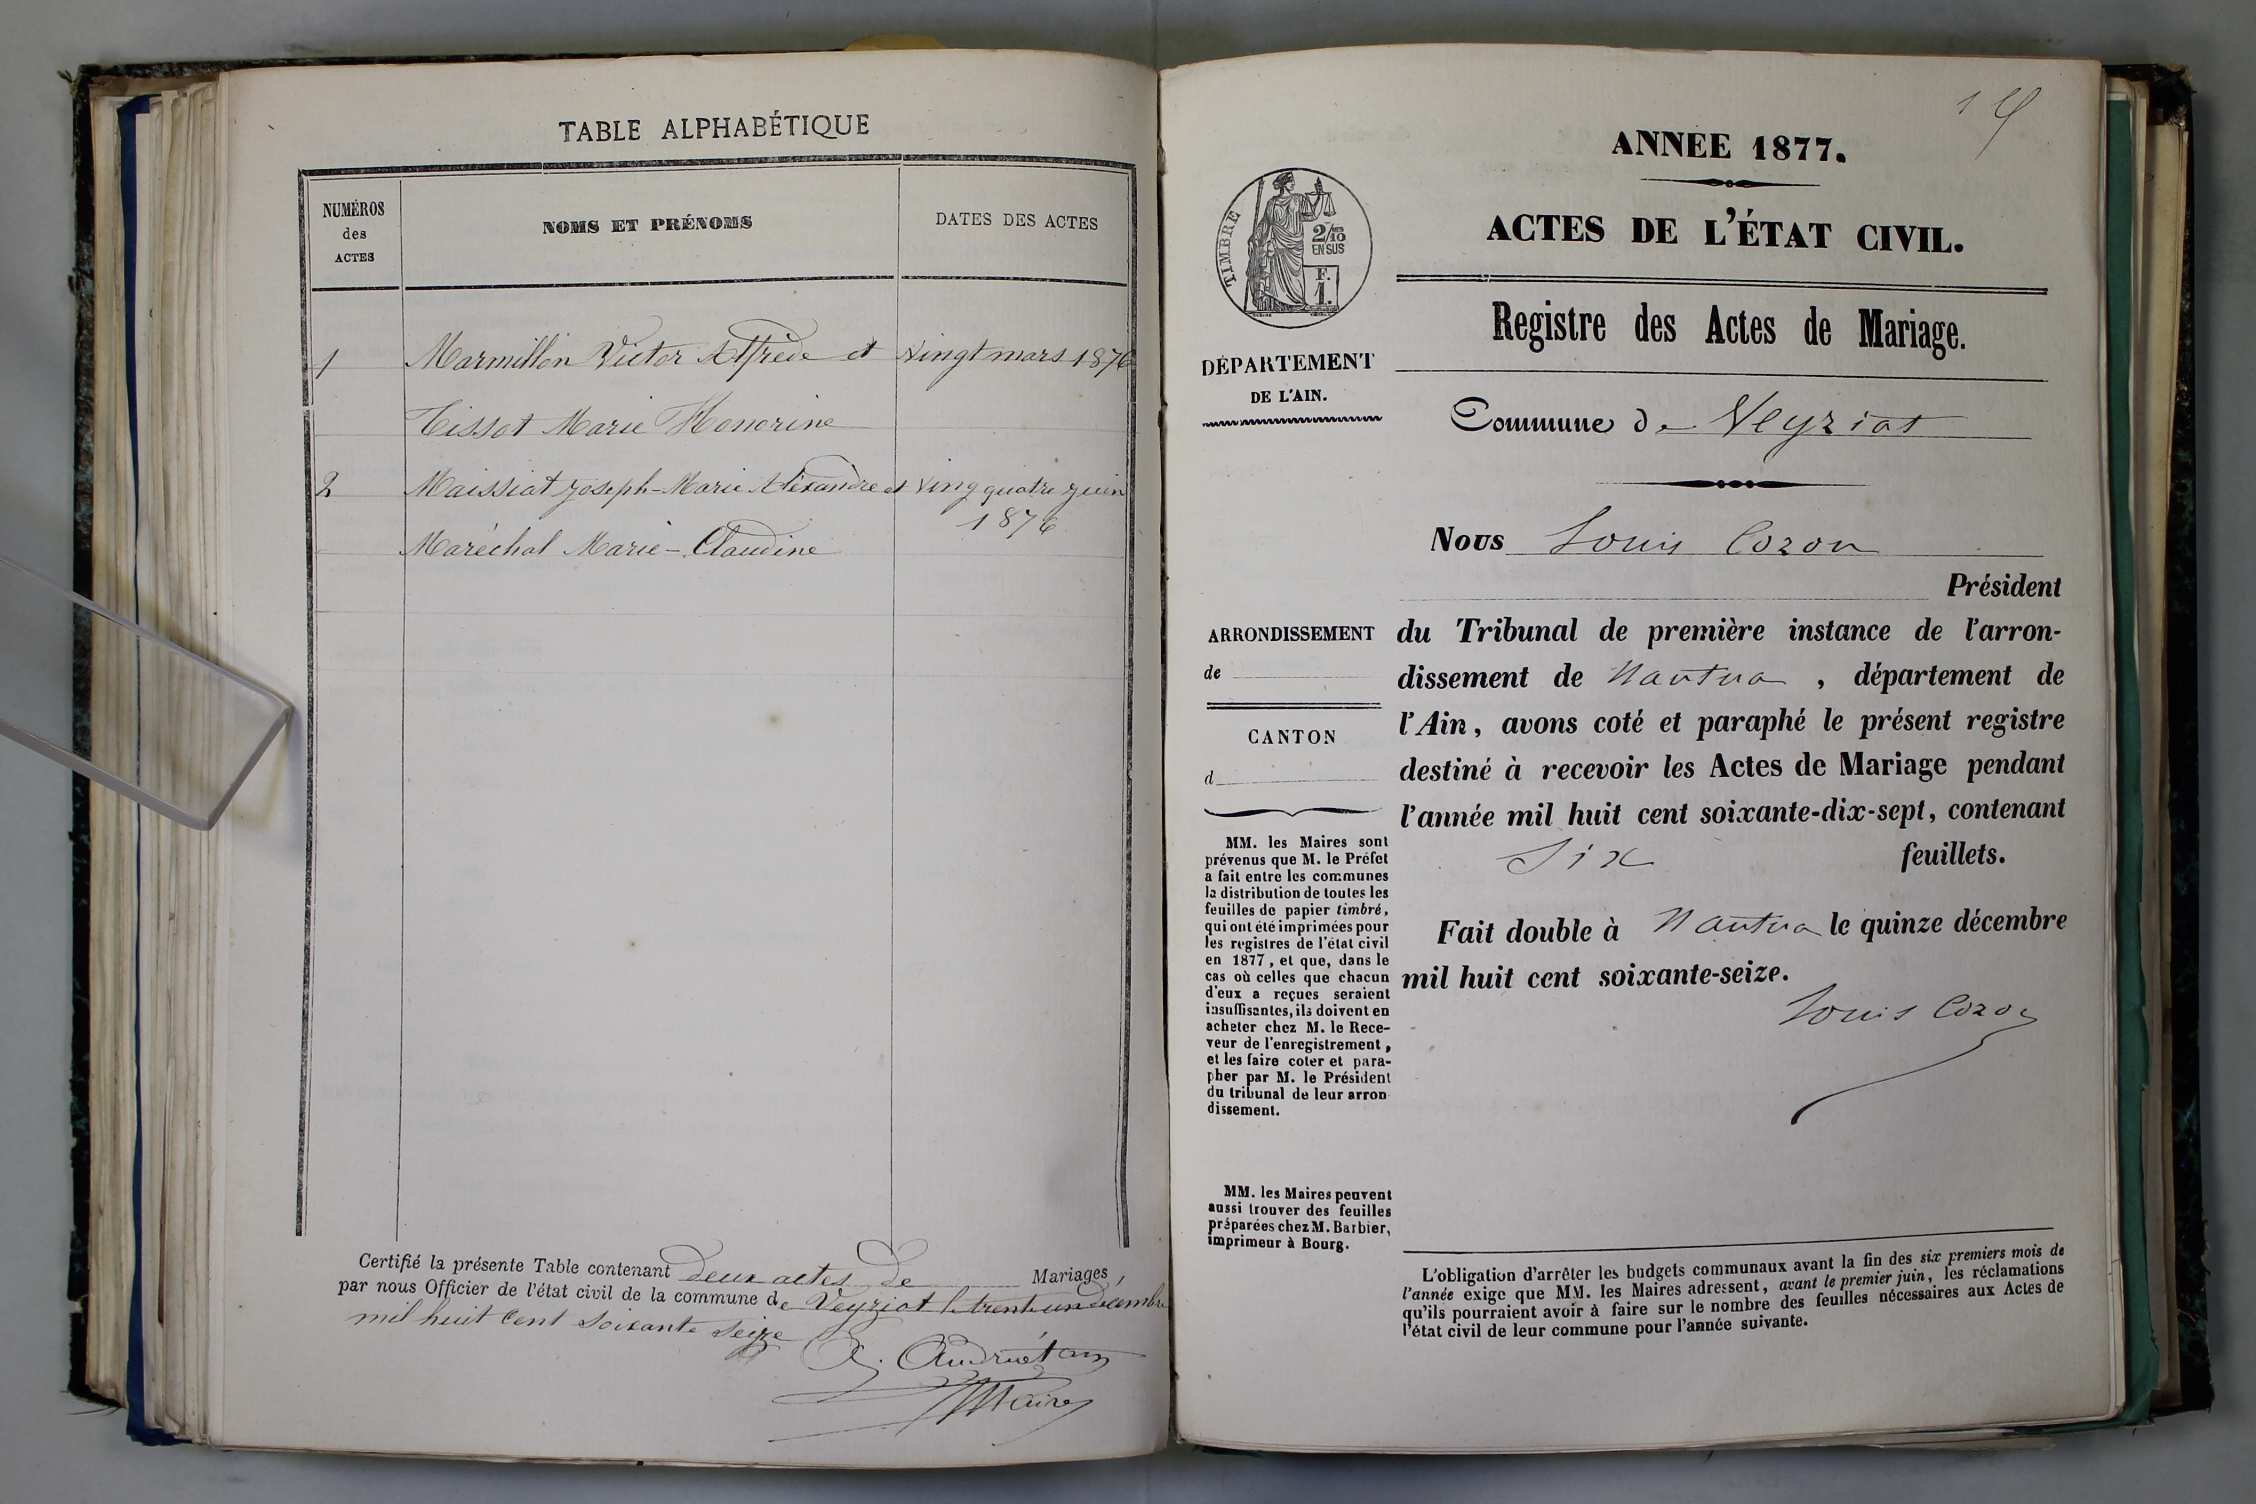 TABLE ALPHABÉTIQUE
NUMÉROS
des
ACTES
NOMS ET PRÉNOMS
DATES DES ACTES
1 Marmillon Victor Alfrède et vingt mars 1876
Tissot Marie Honorine
2 Maissiat Joseph-Marie Alexandre et ving quatre juin
1876
Maréchal Marie-Claudine
Certifié la présente Table contenant deux actes de Mariages,
par nous Officier de l'état civil de la commune de Veyziat le trente un décembre
mil huit cent soixante seize
Maire
ANNÉE 1877.
ACTES DE L'ÉTAT CIVIL.
TIMBRE
2/10 EN SUS
F.
1.
Registre des Actes de Mariage.
DÉPARTEMENT
DE L'AIN.
Commune de Veyziat
Nous Louis Cozon
Président
ARRONDISSEMENT
de
CANTON
d
du Tribunal de première instance de l'arron-
dissement de Nantua, département de
l'Ain, avons coté et paraphé le présent registre
destiné à recevoir les Actes de Mariage pendant
l'année mil huit cent soixante-dix-sept, contenant
Six feuillets.
Fait double à Nantua le quinze décembre
mil huit cent soixante-seize.
Louis Cozon
MM. les Maires sont
prévenus que M. le Préfet
a fait entre les communes
la distribution de toutes les
feuilles de papier timbré,
qui ont été imprimées pour
les registres de l'état civil
en 1877, et que, dans le
cas où celles que chacun
d'eux a reçues seraient
insuffisantes, ils doivent en
acheter chez M. le Rece-
veur de l'enregistrement,
et les faire coter et para-
pher par M. le Président
du tribunal de leur arron
dissement.
MM. les Maires peuvent
aussi trouver des feuilles
préparées chez M. Barbier,
imprimeur à Bourg.
L'obligation d'arrêter les budgets communaux avant la fin des six premiers mois de
l'année exige que MM. les Maires adressent, avant le premier juin, les réclamations
qu'ils pourraient avoir à faire sur le nombre des feuilles nécessaires aux Actes de
l'état civil de leur commune pour l'année suivante.